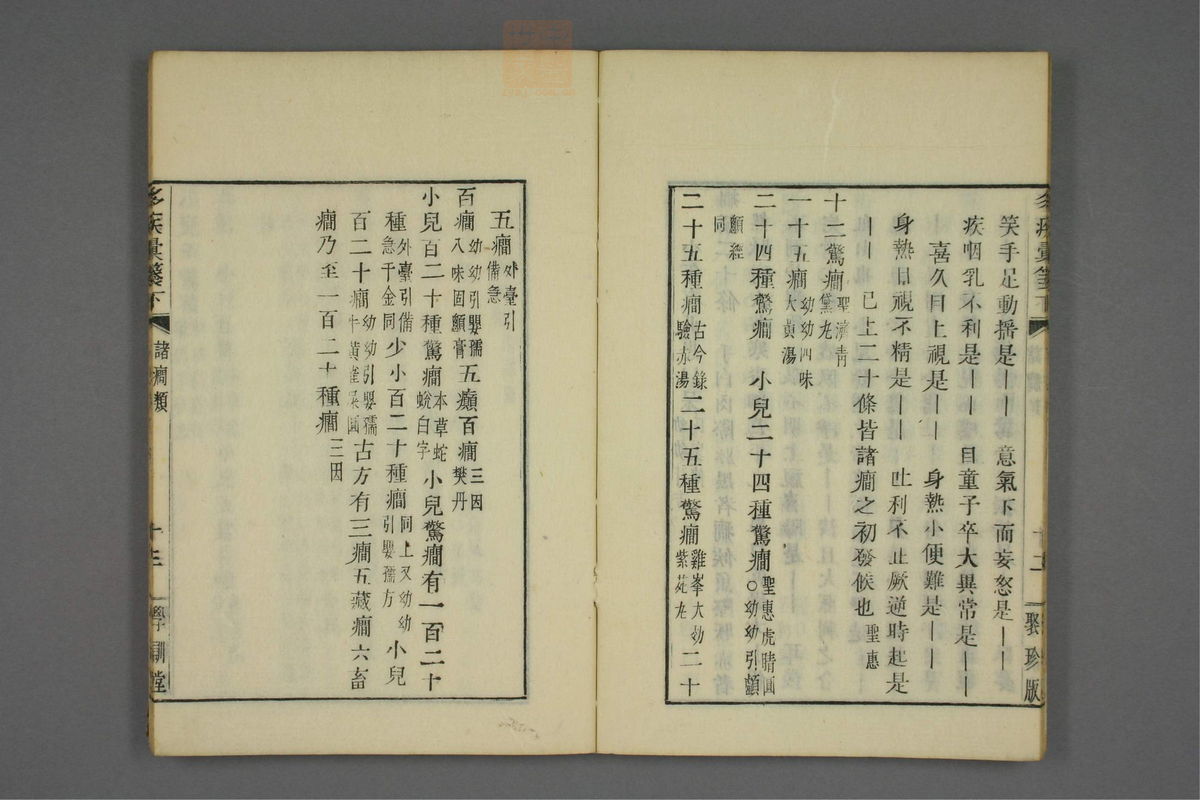 笑手足動搖是｜意氣下而妄怒是｜｜
疾咽乳不利是｜｜目童子卒大異常是｜｜
喜久目上視是｜｜身熱小便難是｜｜
身熱目視不精是｜｜吐利不止厥逆時起是
｜｜已上二十條皆諸癎之初發候也聖惠
十三驚癎聖濟青黛丸
一十五癎幼幼四味大黃湯
二十四種驚癎小兒二十四種驚癎聖惠虎睛圓○幼幼引顱顖經同
二十五種癎古今錄驗赤湯二十五種驚癎雞峯大幼紫菀丸二十
學訓堂聚珍版
五癎外臺引備急
百癎幼幼引嬰孺八味固顖膏五癲百癎三因樊丹
小兒百二十種驚癎本草蛇蛻白字小兒驚癎有一百二十
種外臺引備急千金同少小百二十種癎同上又幼幼引嬰孺方小兒
百二十癎幼幼引嬰孺牛黃雀屎圓古方有三癎五藏癎六畜
癎乃至一百二十種癎三因
諸癎類
十三
學訓堂